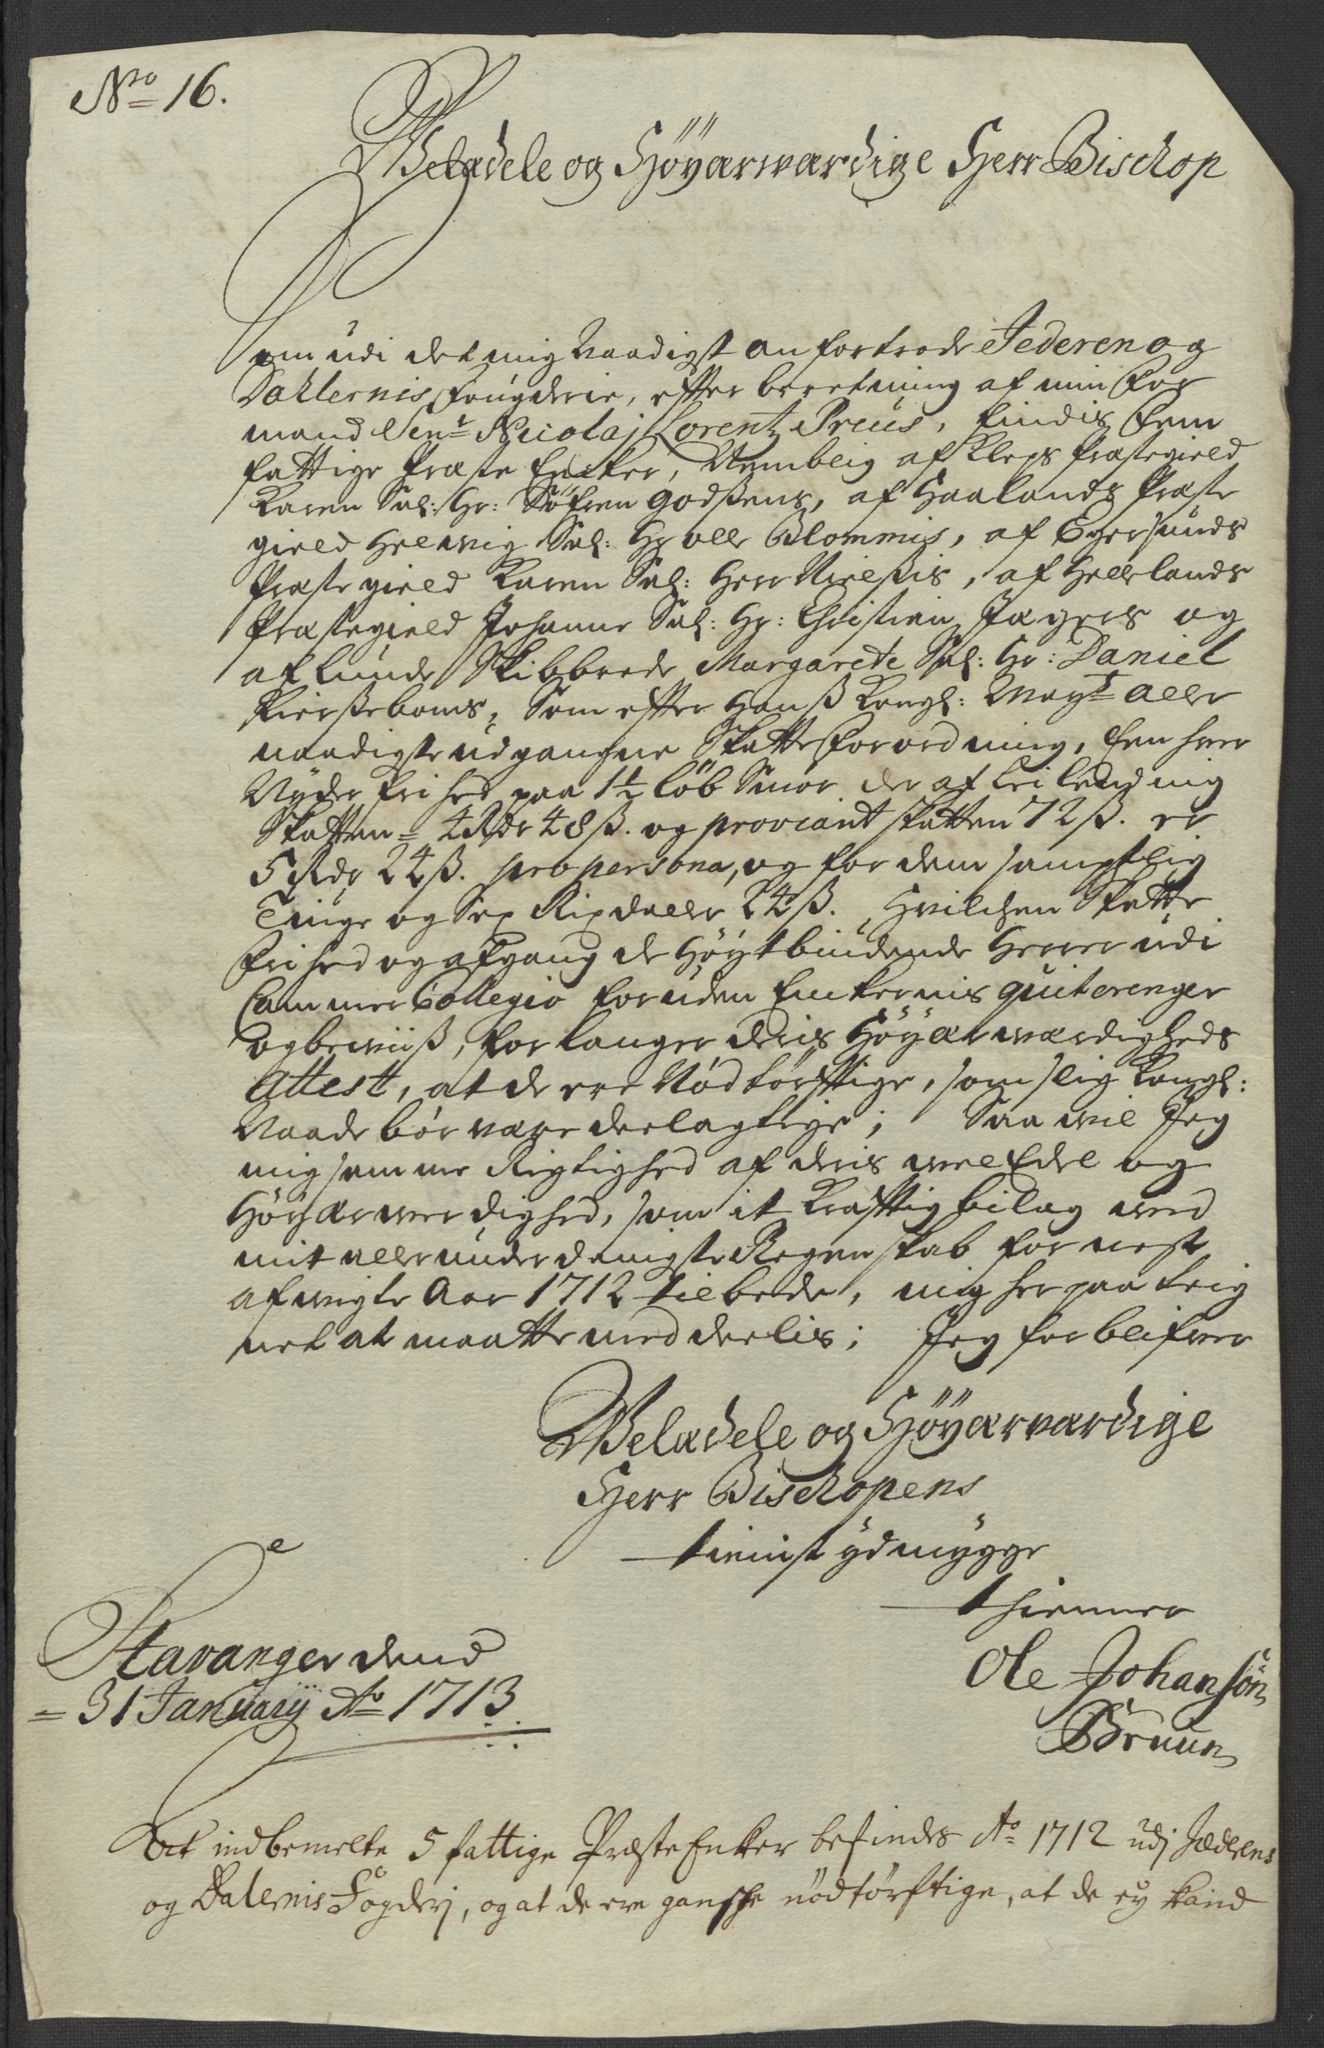 No 16.
Welædele og Høÿærwærdige Herr Bischop
Som udi det mig Naadigst anfortrode Jederen og
Dahlernis Fougderie, efter beretning af min For
mand Senr Nicolaj Lorentz Preus, findis Fem
fattige Præste Encker, Nemblig af Kleps Præstegield
Karen Sal: Hr: Søfren Godsßens, af Haalands Præste
gield Helwig Sal: Hr Olle Blommis, af Egersunds
Præstegield Karen Sal: Herr Nielßis, af Hellelands
Præstegield Johanne Sal: Hr: Christian Jagers og
af Lunde Skibbrede Margarete Sal: Hr: Daniel
Kierßeboms, Som efter Hanß Kongl: Mayts Aller
naadigste udgangne Skatte Forordning, Een hver
Nyder frihed paa 1½ Løb Smør der af Leilending
Skatten = 4 Rdr 48ß. og proviant skatten 72ß. er
5 Rdr 24ß. pro persona, og for dem samptlig
Tiuge og Sex Rixdaller 24ß. Hvilchen Skatte
frihed og afgang de Høytbiudende Herrer udi
Cammer Collegio foruden Enkernis quiterenger
og beviiß, forlanger deris Høyærwærdigheds
Attest, at de ere Nødtørftige, som slig Kongl:
Naade bør være deelagtige; Saa vil Jeg
mig samme Rigtighed af deris vel Edle og
Høyærverdighed, som it kraftig bilag ved
mit allerunderdanigste Regenskab for nest
afvigte Aar 1712 tilbede, mig her paa teig
net at maatte meddeelis; Jeg forblifver
Welædele og Høÿærværdige
Herr Bischopens
tienist ydmygge
thienner
Ole Johansøn
Bruun
Stavanger dend
= 31 Januarij Ao 1713
At indbemelte 5 fattige Præste Enker befindes Ao 1712 udj Jæderens
og Dalernis Fogderj, og at de ere gansche nødtørftige, at de ey kand